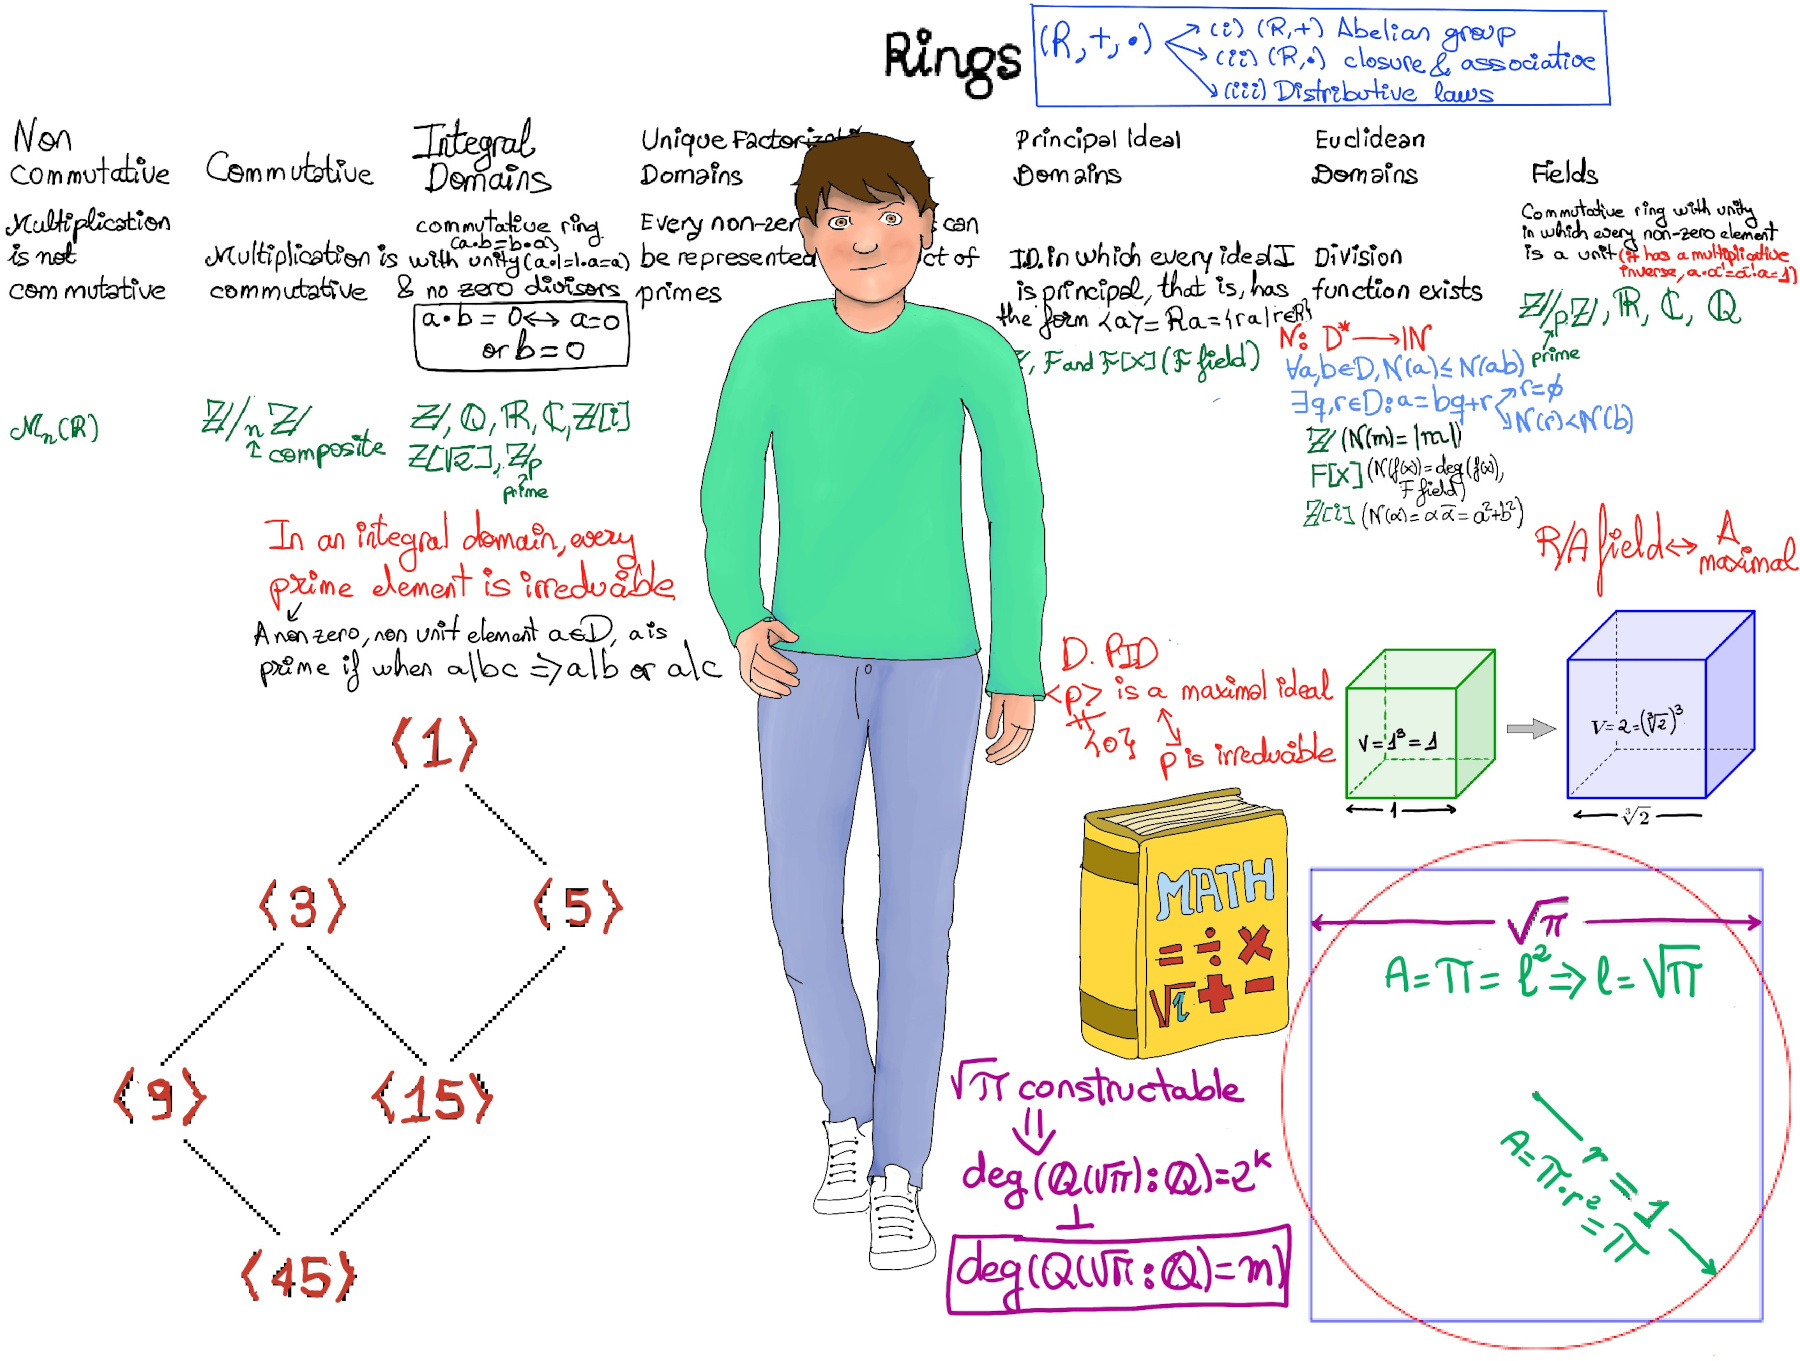 Rings
(R,+,•)
(i) (R,+) Abelian group
(ii) (R,•) closure & associative
(iii) Distributive laws
Non
commutative
Multiplication
is not
commutative
Mn(R)
Commutative
Multiplication is
commutative
Z/nZ
composite
Integral
Domains
commutative ring
(a•b=b•a)
with unity (a•1=1•a=a)
& no zero divisors
a•b = 0 ↔ a=0
or b=0
Z, Q, R, C, Z[i]
Z[√2], Zp
prime
Unique
Domains
Every can
be represented of
primes
Principal Ideal
Domains
I.D. in which every ideal I
is principal, that is, has
the form <a> = Ra = {ra | r∈R}
, F and F[x] (F field)
Euclidean
Domains
Division
function exists
N: D* → IN
∀a,b∈D, N(a) ≤ N(ab)
∃q,r∈D: a=bq+r r=ϕ
N(r)<N(b)
Z (N(m)=|m|)
F[x] (N(f(x))=deg(f(x),
F field)
Z[i] (N(α)=αᾱ=a²+b²)
Fields
Commutative ring with unity
in which every non-zero element
is a unit (it has a multiplicative
inverse, a•a⁻¹=a⁻¹a=1)
Z/pZ, R, C, Q
prime
R/A field ↔ A
maximal
In an integral domain, every
prime element is irreducible
A non zero, non unit element a∈D, a is
prime if when a|bc ⇒ a|b or a|c
D. PID
<p> is a maximal ideal
≠
{0}
p is irreducible
V=1³=1
1
V=2=(∛2)³
∛2
⟨1⟩
⟨3⟩ ⟨5⟩
⟨9⟩ ⟨15⟩
⟨45⟩
MATH
= ÷ ×
+ -
√π
A=π=l² ⇒ l=√π
r=1
A=π•r²=π
√π constructable
⇓
deg(Q(√π):Q)=2ᵏ
⊥
deg(Q(√π:Q)=m)